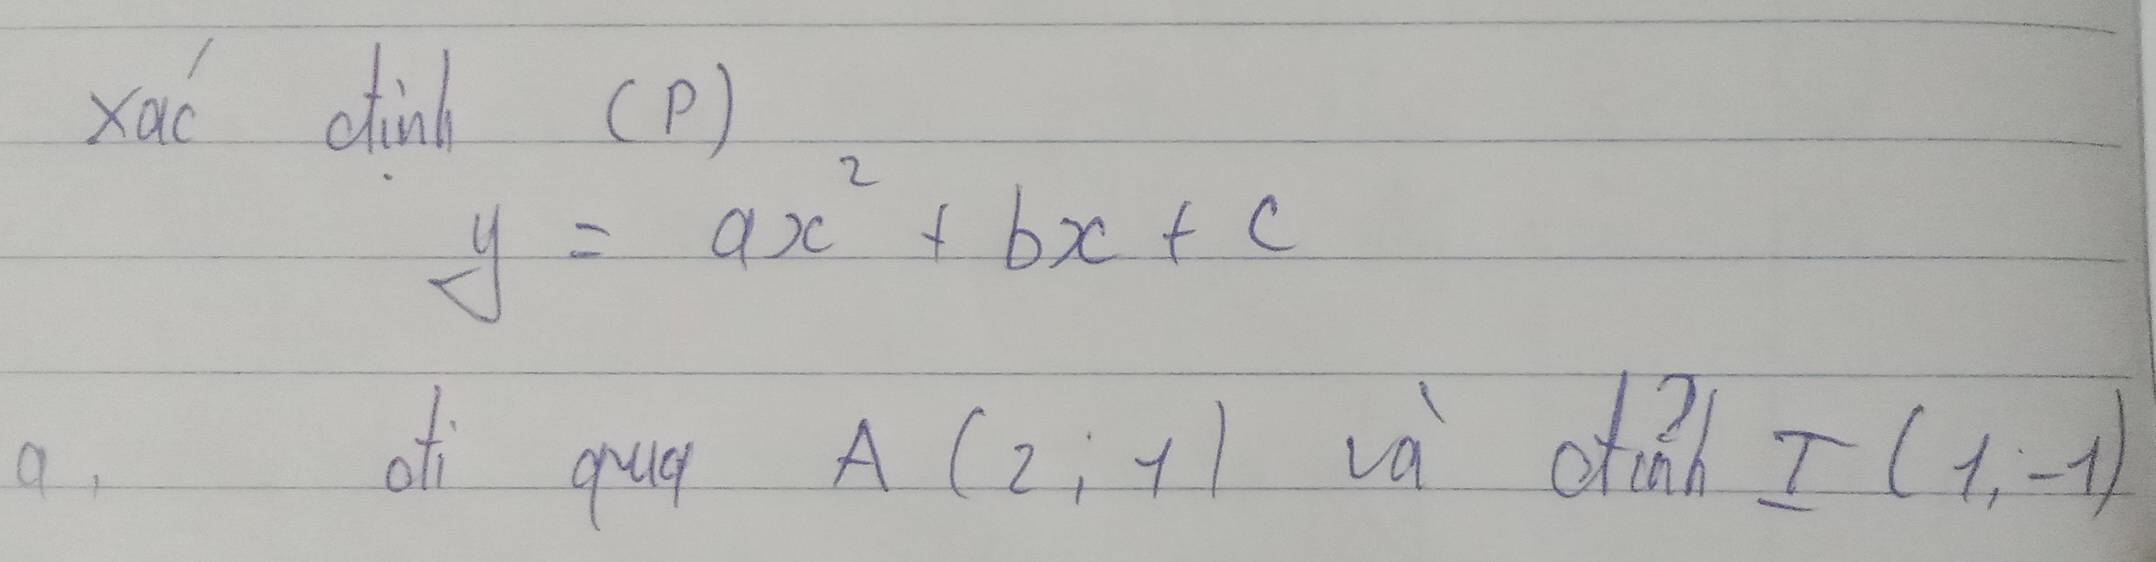 xác định (P)
y = ax² + bx + c
a, đi qua A (2; 1) và đỉnh I (1; -1)